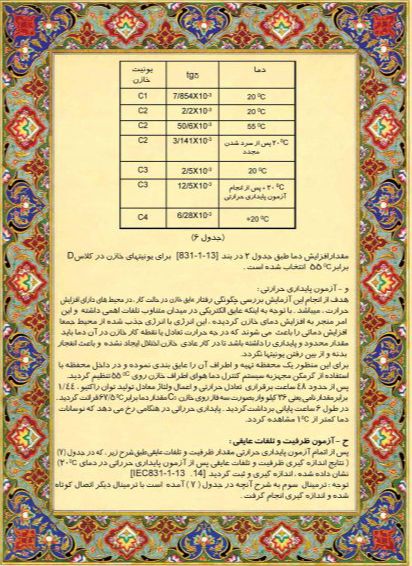 یونیت خازن tgδ دما
C1 7/854X10⁻³ 20 ⁰C
C2 2/2X10⁻³ 20 ⁰C
C2 50/6X10⁻³ 55 ⁰C
C2 3/141X10⁻³ ۲۰ ⁰C پس از سرد شدن مجدد
C3 2/5X10⁻³ 20 ⁰C
C3 12/5X10⁻³ ۲۰ ⁰C + پس از انجام آزمون پایداری حرارتی
C4 6/28X10⁻³ +20 ⁰C
(جدول ۶)
مقدارافزایش دما طبق جدول ۲ در بند [13-1-831] برای یونیتهای خازن در کلاس D
برابر ⁰C ۵۵ انتخاب شده است .
و – آزمون پایداری حرارتی :
هدف از انجام این آزمایش بررسی چگونگی رفتار عایق خازن در حالت کار ، در محیط های دارای افزایش
حرارت ، میباشد . با توجه به اینکه عایق الکتریکی در میدان متناوب تلفات اهمی داشته و این
امر منجر به افزایش دمای خازن گردیده ، این انرژی با انرژی جذب شده از محیط جمعا
افزایش دمائی را باعث می شوند که در چه حرارت تعادل یا نقطه کار خازن در آن دما باید
مقدار محدود و پایداری را داشته باشد تا در کار عادی خازن اختلال ایجاد نشده و باعث انفجار
بدنه و از بین رفتن یونیتها نگردد.
برای این منظور یک محفظه تهیه و اطراف آن را عایق بندی نموده و در داخل محفظه با
استفاده از گرمکن مجهز به سیستم کنترل دما هوای اطراف خازن روی ⁰C ۵۵ تنظیم گردید.
پس از حدود ٤٨ ساعت برقراری تعادل حرارتی و اعمال ولتاژ معادل تولید توان راکتیو ، ١/٤٤
برابر مقدار نامی یعنی ۳۶ کیلو وار بصورت سه فاز روی خازن C₃ مقدار دما برابر ⁰C ۶۷/۵ قرائت گردید.
در طول ۶ ساعت پایانی برداشت گردید . پایداری حرارتی در هنگامی رخ می دهد که نوسانات
دما کمتر از ⁰C ۱ مشاهده گردد.
ح – آزمون ظرفیت و تلفات عایقی :
پس از اتمام آزمون پایداری حرارتی مقدار ظرفیت و تلفات عایقی طبق شرح زیر ، که در جدول (۷)
( نتایج اندازه گیری ظرفیت و تلفات عایقی پس از آزمون پایداری حرارتی در دمای ⁰C ۲۰)
نشان داده شده ، اندازه گیری و ثبت گردید [14. IEC831-1-13]
توجه : ترمینال سوم به شرح آنچه در جدول ( ۷ ) آمده است با ترمینال دیگر اتصال کوتاه
شده و اندازه گیری انجام گرفت .